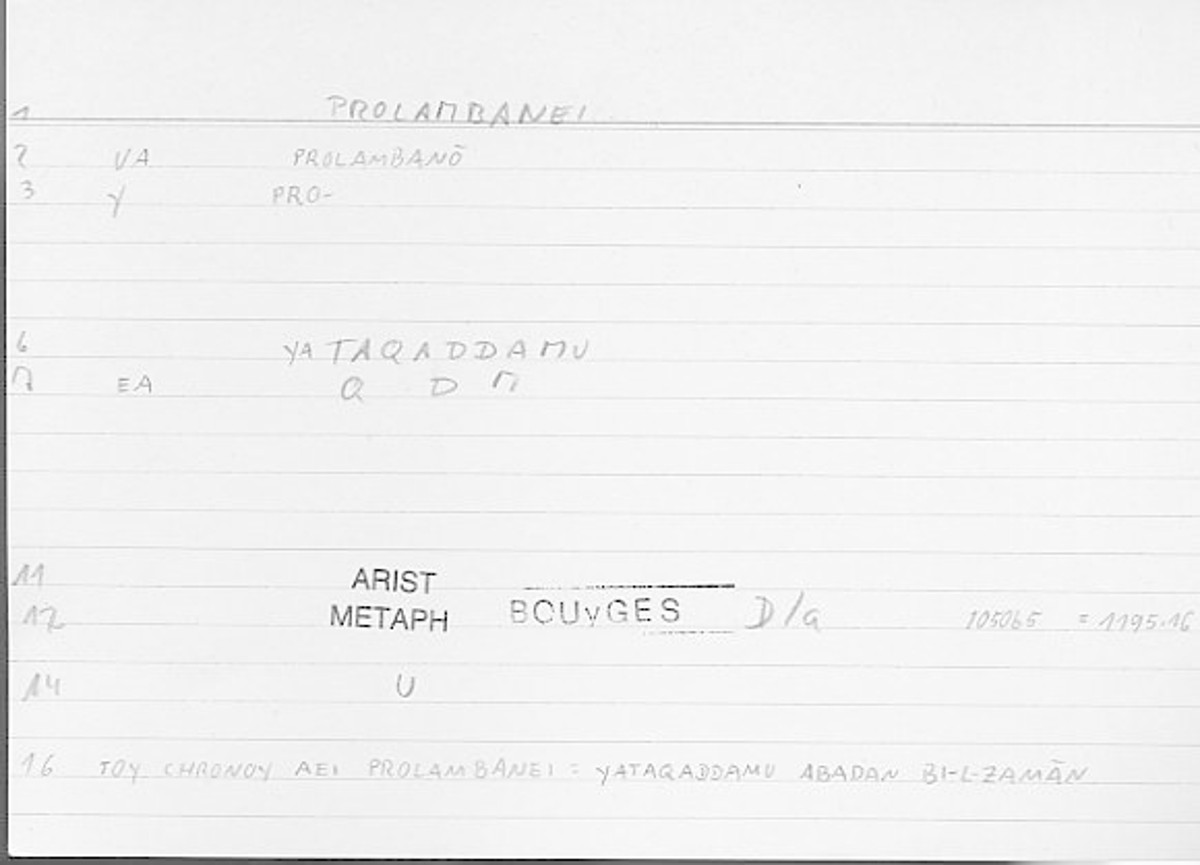 1 PROLAMBANEI
2 VA PROLAMBANŌ
3 Y PRO-
6 YATAQADDAMU
7 EA Q D M
11 ARIST
12 METAPH BOUYGES D/G 1050b5 = 1195.16
14 U
16 TOY CHRONOY AEI PROLAMBANEI = YATAQADDAMU ABADAN BI-L-ZAMĀN